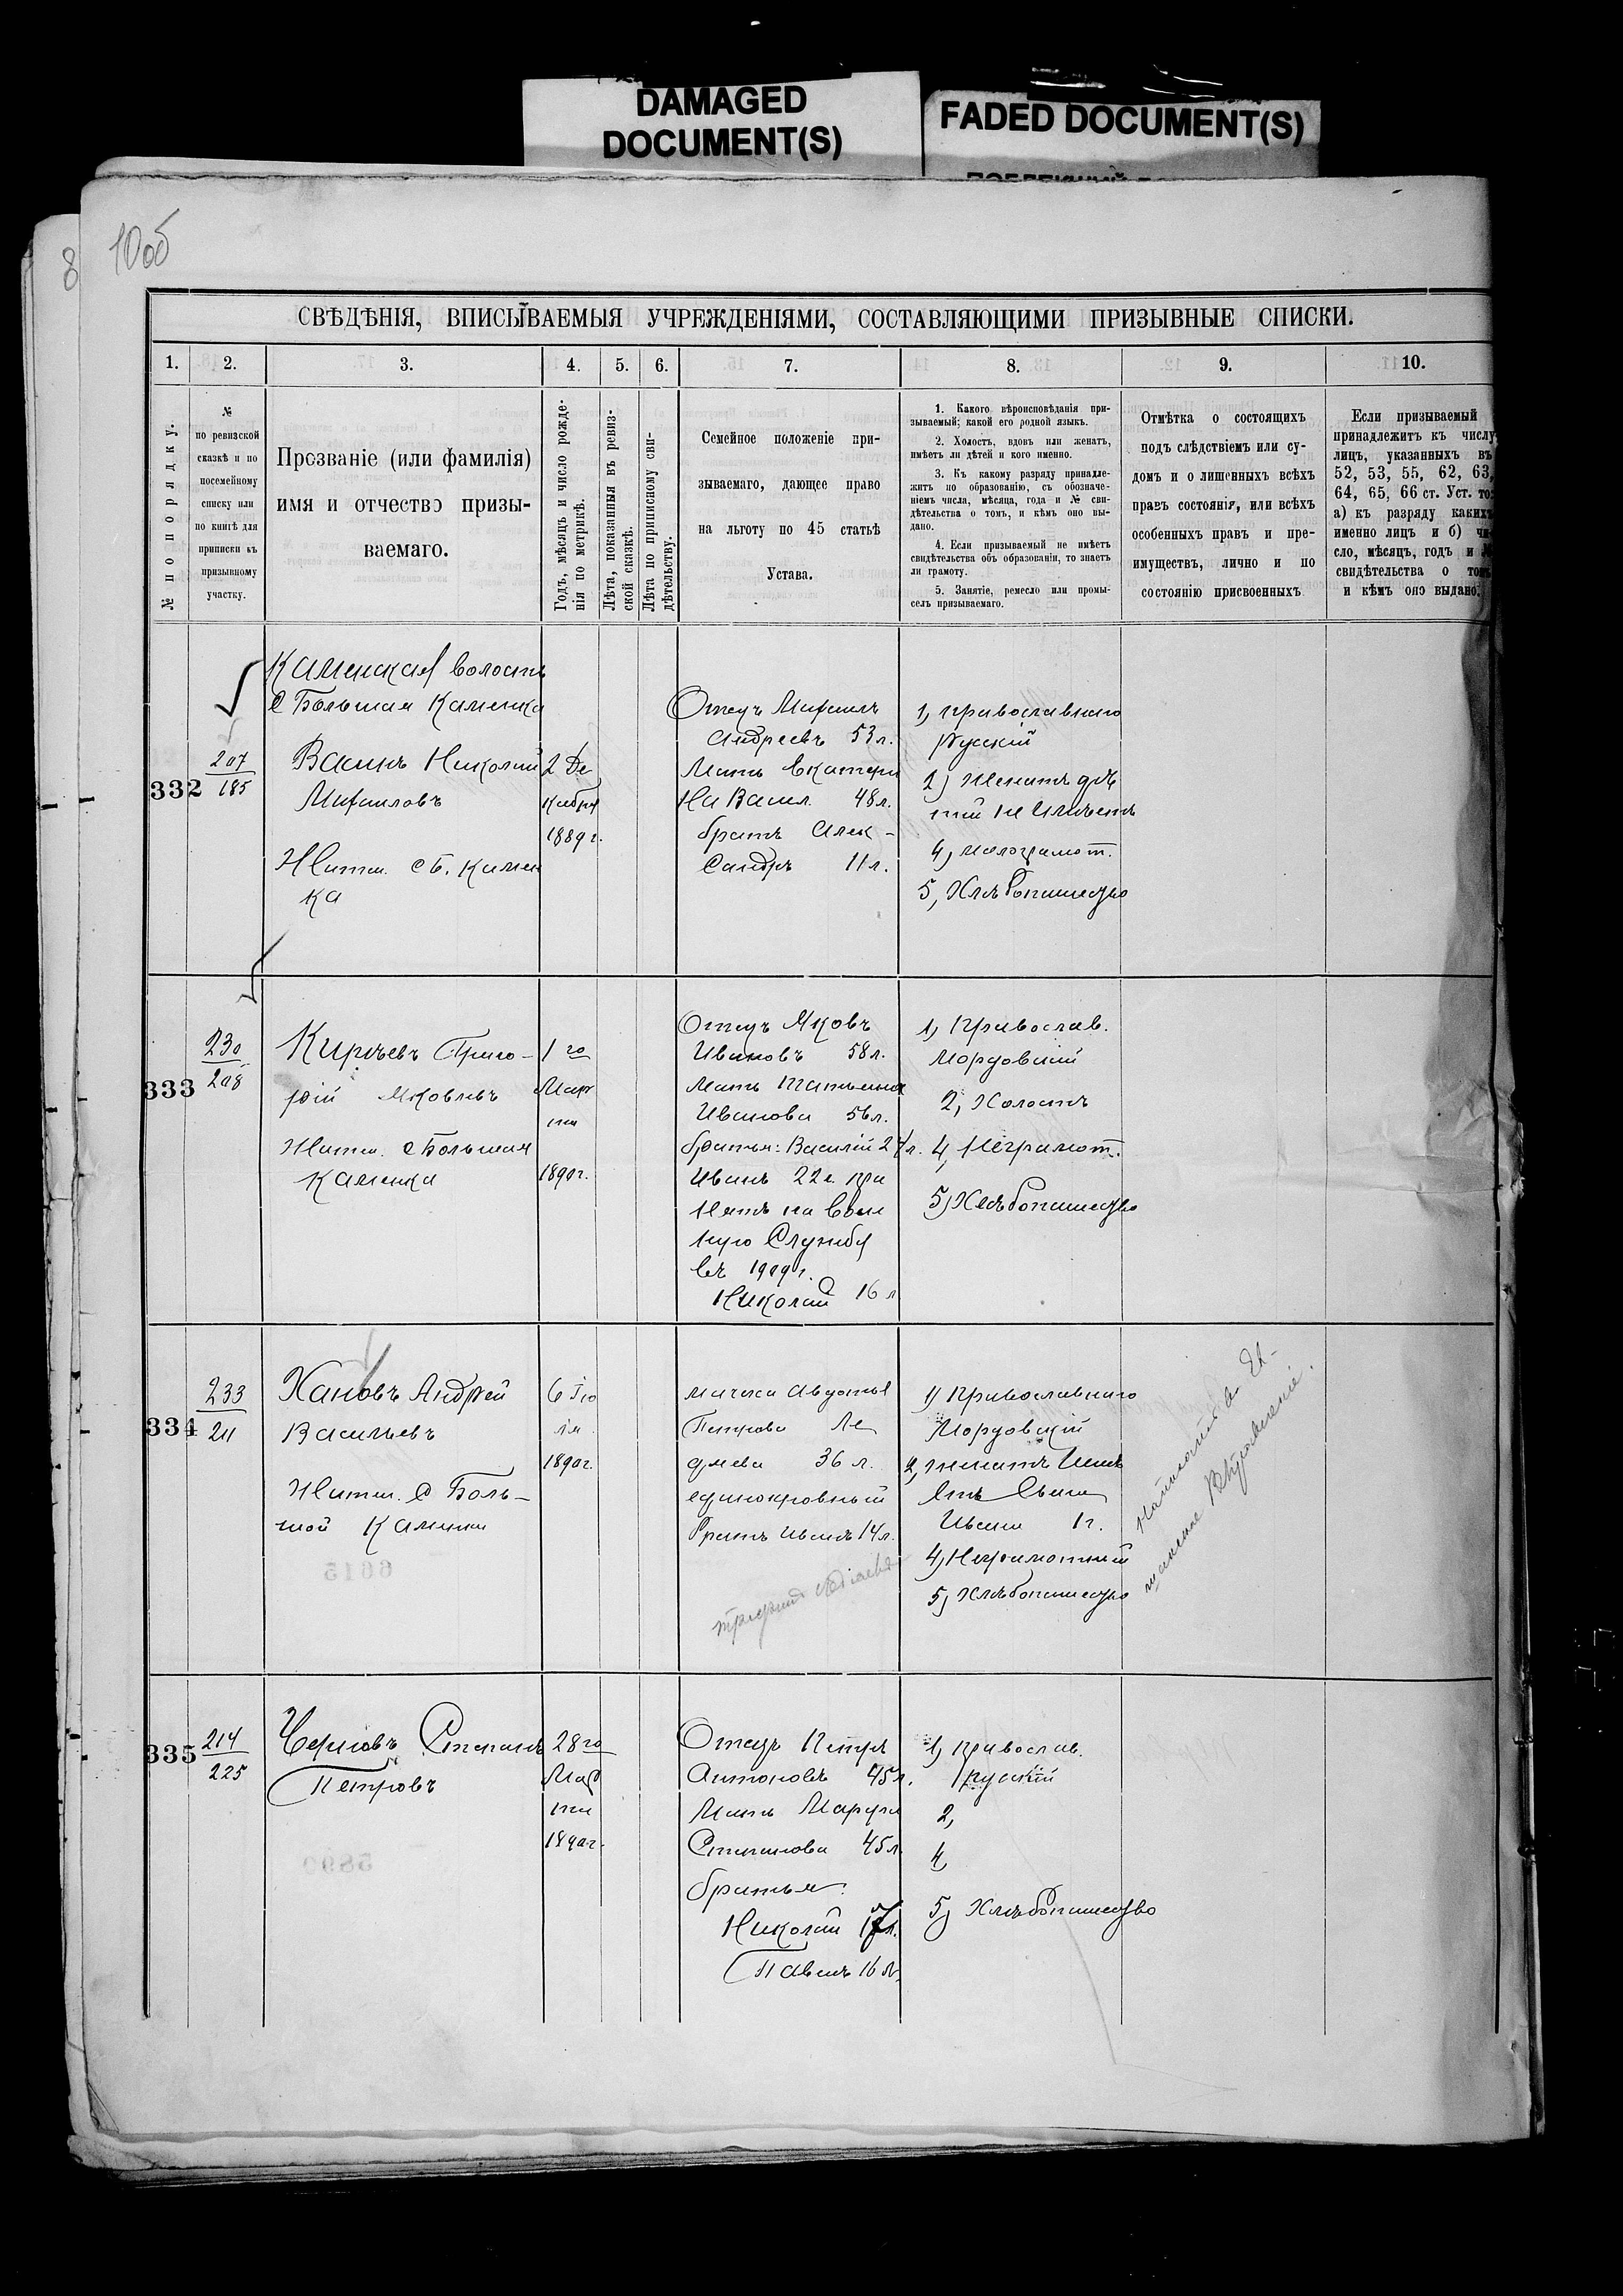 DAMAGED
DOCUMENT(S)
FADED DOCUMENT(S)
8
10об
СВѢДѢНІЯ, ВПИСЫВАЕМЫЯ УЧРЕЖДЕНІЯМИ, СОСТАВЛЯЮЩИМИ ПРИЗЫВНЫЕ СПИСКИ.
1. 2. 3. 4. 5. 6. 7. 8. 9. 10.
№ по порядку.
№
по ревизской
сказкѣ и по
посемейному
списку или
по книгѣ для
приписки къ
призывному
участку.
Прозваніе (или фамилія)
имя и отчество призы-
ваемаго.
Годъ, мѣсяцъ и число рожде-
нія по метрикѣ.
Лѣта, показанныя въ ревиз-
ской сказкѣ.
Лѣта по приписному сви-
дѣтельству.
Семейное положеніе при-
зываемаго, дающее право
на льготу по 45 статьѣ
Устава.
1. Какого вѣроисповѣданія при-
зываемый; какой его родной языкъ.
2. Холостъ, вдовъ или женатъ,
имѣетъ ли дѣтей и кого именно.
3. Къ какому разряду принадле-
житъ по образованію, съ обозначе-
ніемъ числа, мѣсяца, года и № сви-
дѣтельства о томъ, и кѣмъ оно вы-
дано.
4. Если призываемый не имѣетъ
свидѣтельства объ образованіи, то знаетъ
ли грамоту.
5. Занятіе, ремесло или промы-
селъ призываемаго.
Отмѣтка о состоящихъ
подъ слѣдствіемъ или су-
домъ и о лишенныхъ всѣхъ
правъ состоянія, или всѣхъ
особенныхъ правъ и пре-
имуществъ, лично и по
состоянію присвоенныхъ
Если призываемый
принадлежитъ къ числу
лицъ, указанныхъ въ
52, 53, 55, 62, 63,
64, 65, 66 ст. Уст. то:
а) къ разряду какихъ
именно лицъ и б) чи
сло, мѣсяцъ, годъ и №
свидѣтельства о томъ
и кѣмъ оно выдано.
Каменская волость
с Большая Каменка
332
207
185
Васинъ Николай
Михаиловъ
Жител. с Б. Камен
ка
2 Де
кабря
1889 г.
Отецъ Михаилъ
Андреевъ 53 л.
Мать Екатери
на Васил. 48 л.
братъ Алек-
сандръ 11 л.
1, православнаго
русскій
2, Женатъ дѣ
тей не имѣетъ
4, малограмот.
5, Хлѣбопашество
333
230
208
Кирѣевъ Григо-
рій Яковлевъ
Жител. с Большая
Каменка
1 го
Мар
та
1890 г.
Отецъ Яковъ
Ивановъ 58 л.
Мать Татьяна
Иванова 56 л.
братья: Василій 27 л.
Иванъ 22 л. при
нятъ на воен
ную службу
въ 1909 г.
Николай 16 л
1, Православ.
Мордовскій
2, Холостъ
4, Неграмот.
5, Хлѣбопашество
334
233
211
Хановъ Андрей
Васильевъ
Жител. с Боль-
шой Каменки
6 Ію
ля
1890 г.
мачеха Авдотья
Петрова
36 л.
единокровный
братъ Иванъ 14 л.
1, Православнаго
Мордовскій
2, женатъ Имѣ
етъ Сына
Ивана 1 г.
4, Неграмотный
5, Хлѣбопашество
335
214
225
Черновъ Степанъ
Петровъ
28 го
Мар
та
1890 г.
Отецъ Петръ
Антоновъ 45 л.
Мать Марфа
Степанова 45 л.
братья:
Николай 17 л.
Павелъ 16 л.
1, Православ.
русскій
2,
4,
5, Хлѣбопашество